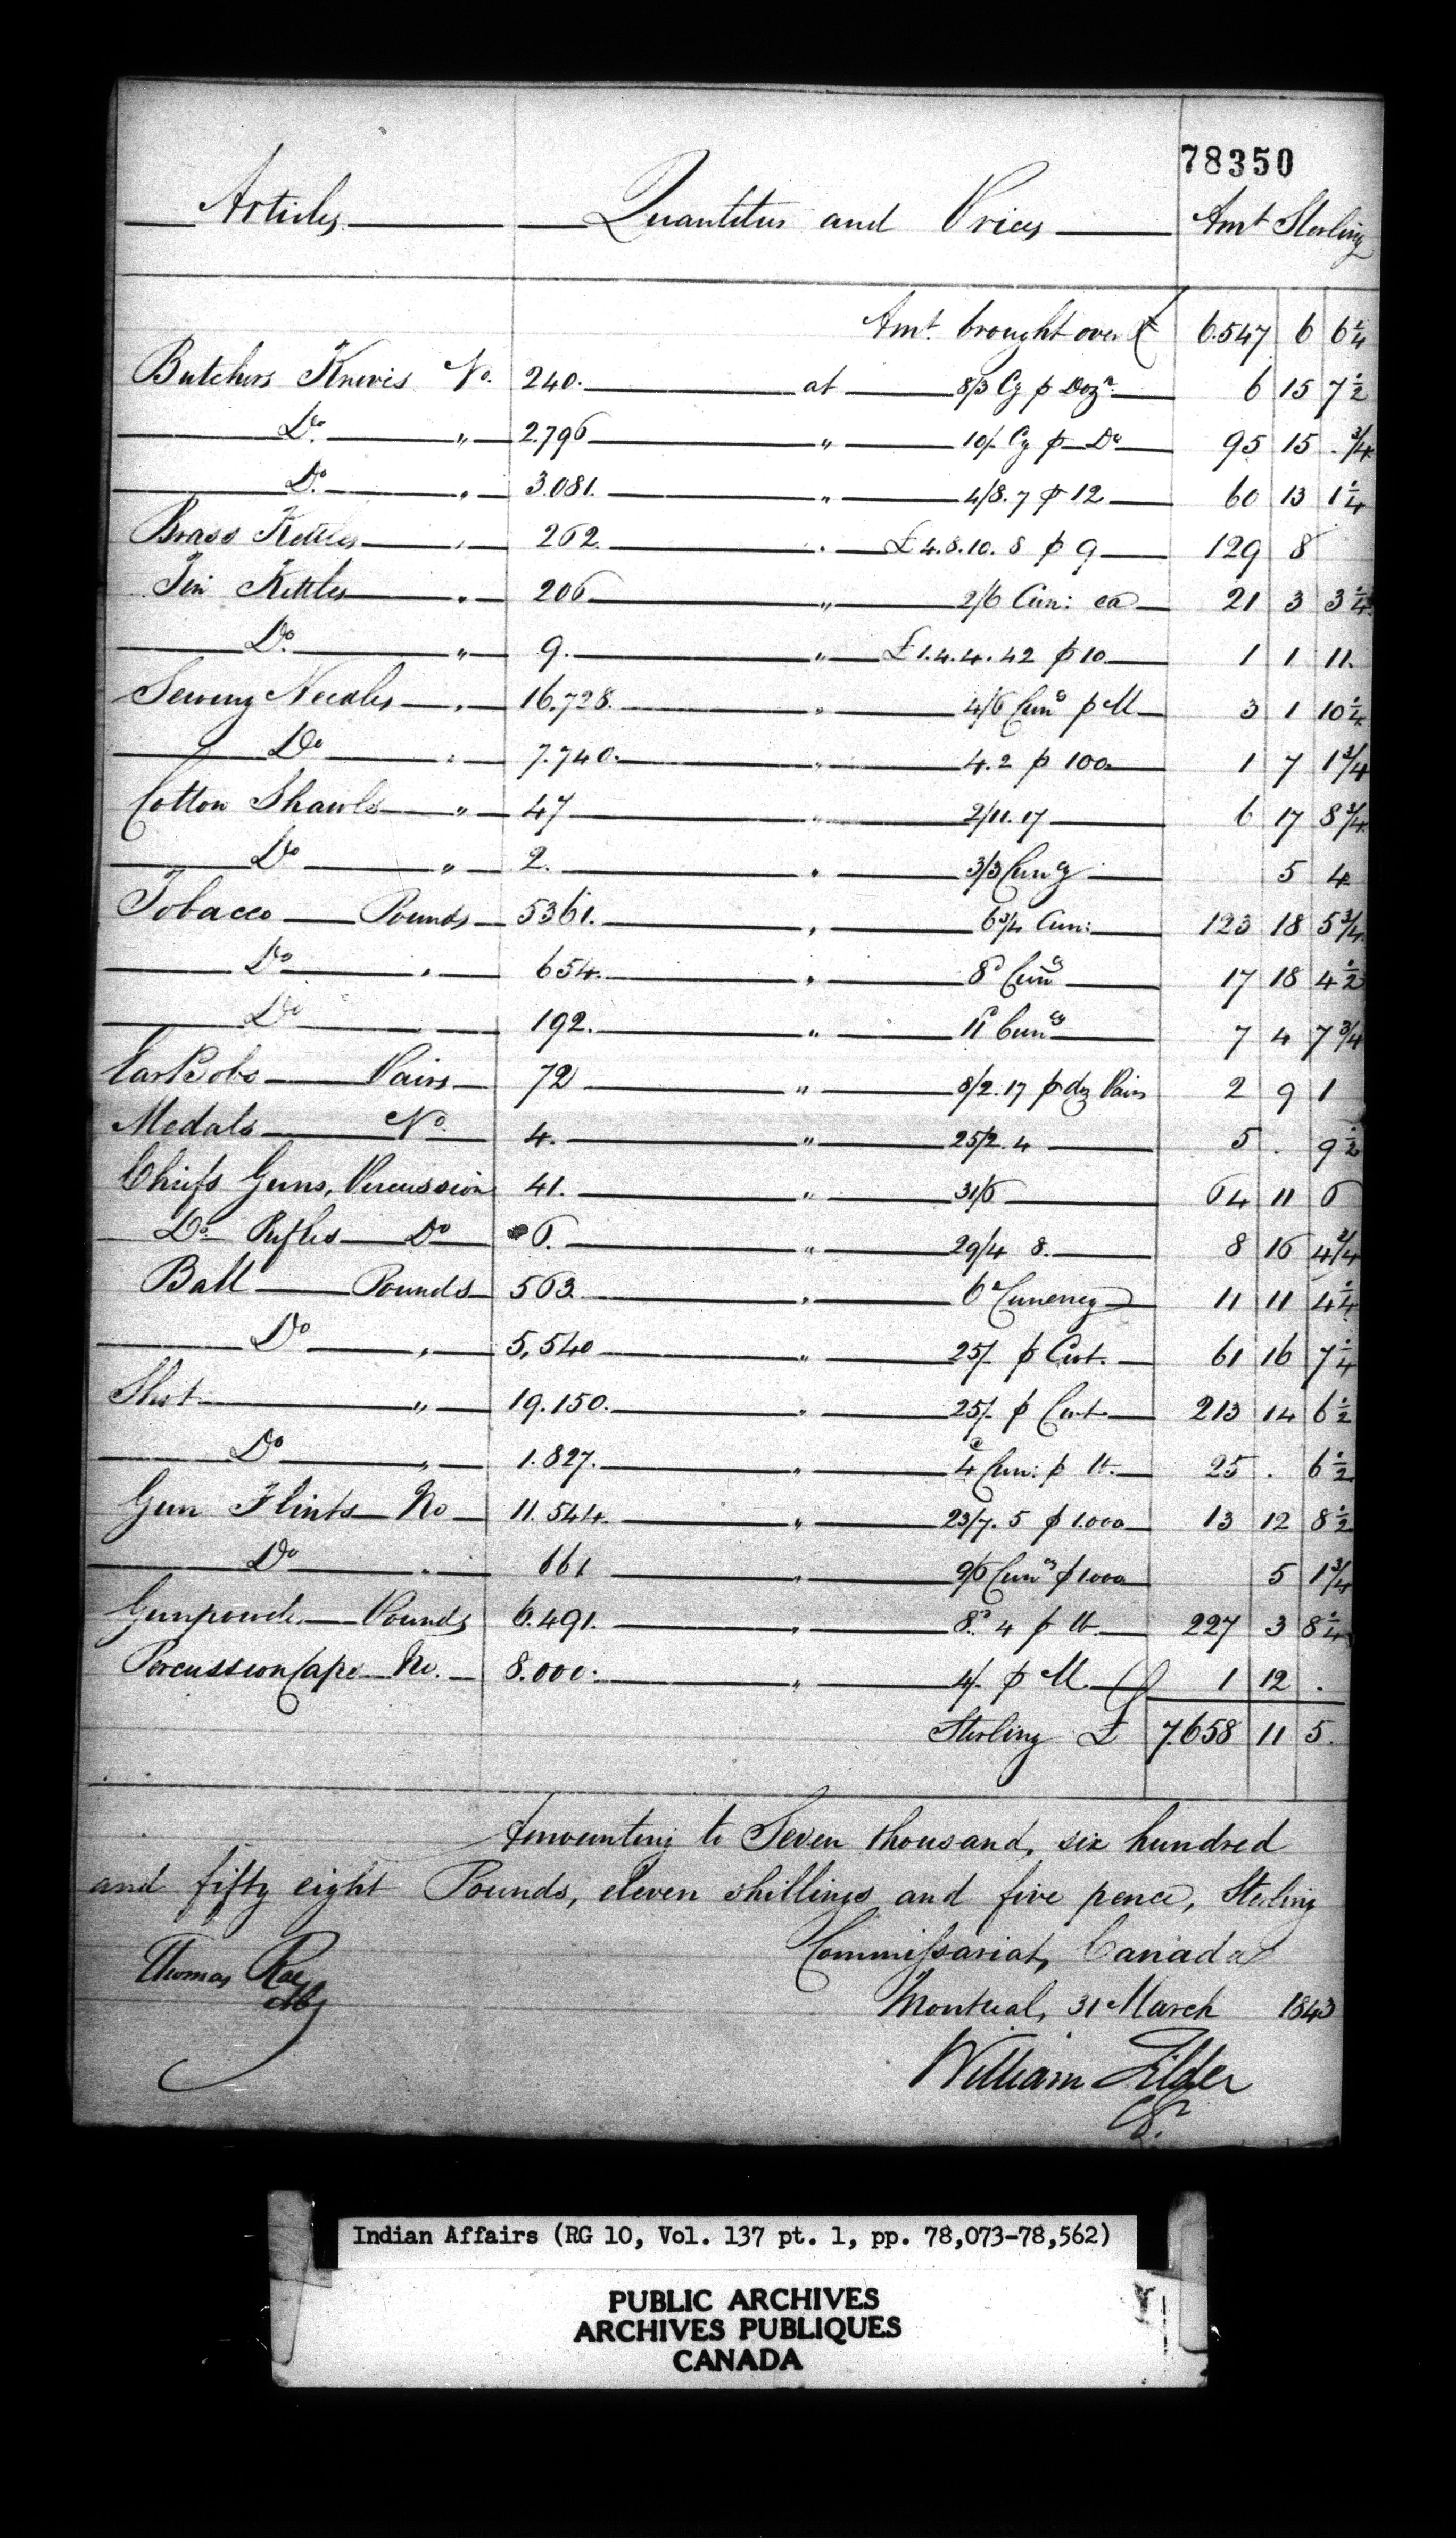 78350
Articles Quantities and Prices Amt Sterling
Amt. brought over £ 6.547 6 6¼
Butchers Knives No. 240. at 8/3 Cy p Dozn. 6 15 7½
Do. " 2.796 " 10/- Cy p Do 95 15 . ¾
Do. " 3.081. " 4/8.7 p 12 60 13 1¼
Brass Kettles " 262. " £4.8.10.8 p 9 129 8
Tin Kettles " 206 " 2/6 Cur: ea 21 3 3¼
Do. " 9. " £1.4.4.42 p 10 1 1 11.
Sewing Needles " 16.728. " 4/6 Curcy p M 3 1 10¼
Do " 7.740. " 4.2 p 100 1 7 1¾
Cotton Shawls " 47 " 2/11.17 6 17 8¾
Do " 2. " 3/3 Curcy 5 4
Tobacco Pounds 5361. " 6¾ Cur: 123 18 5¾
Do " 654. " 8d Curcy 17 18 4½
Do " 192. " 11d Curcy 7 4 7¾
Ear Bobs Pairs 72 " 8/2.17 p dz Pairs 2 9 1
Medals No. 4. " 25/2.4 5 . 9½
Chiefs Guns, Percussion 41. " 31/6 64 11 6
Do. Rifles Do 6. " 29/4 8. 8 16 4¾
Ball Pounds 563 " 6d Currency 11 11 4¼
Do " 5,540 " 25/- p Cwt. 61 16 7¼
Shot " 19.150. " 25/- p Cwt 213 14 6½
Do " 1.827. " 4d Cur: p lb. 25 . 6½
Gun Flints No 11.544. " 23/7.5 p 1.000 13 12 8½
Do " 661 " 9/6 Curcy p 1000 5 1¾
Gunpowder Pounds 6.491. " 8.d 4 p lb. 227 3 8¼
Percussion Caps No. 8.000. " 4/- p M. 1 12 .
Sterling £ 7.658 11 5.
Amounting to Seven thousand, six hundred
and fifty eight Pounds, eleven shillings and five pence, Sterling
Commissariat, Canada
Thomas Rae
Montreal, 31 March 1843
William Filder
CG.
Indian Affairs (RG 10, Vol. 137 pt. 1, pp. 78,073-78,562)
PUBLIC ARCHIVES
ARCHIVES PUBLIQUES
CANADA